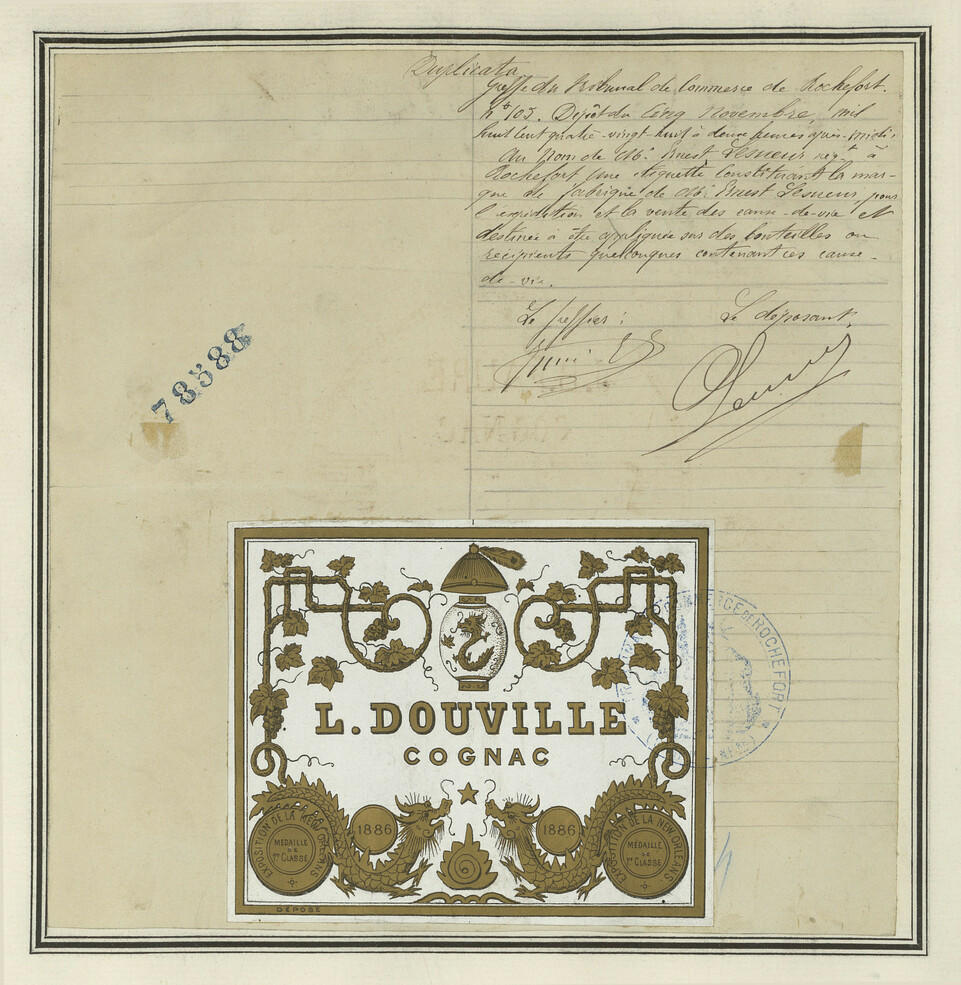 Duplicata
Greffe du Tribunal de Commerce de Rochefort.
N° 103. Dépôt du Cinq Novembre, mil
huit cent quatre-vingt-huit à deux heures après-midi,
Au nom de Mr. Ernest Lesueur négt à
Rochefort une étiquette constituant la mar-
que de fabrique de Mr. Ernest Lesueur, pour
l'expédition et la vente des eaux-de-vie et
destinée à être appliquée sur des bouteilles ou
récipients quelconques contenant ces eaux-
de-vie.
Le greffier : Le déposant,
Lesueur
78588
L. DOUVILLE
COGNAC
1886 1886
EXPOSITION DE LA NEW ORLEANS
MÉDAILLE
DE
1re CLASSE
EXPOSITION DE LA NEW ORLEANS
MÉDAILLE
DE
1re CLASSE
DÉPOSÉ
COMMERCE DE ROCHEFORT